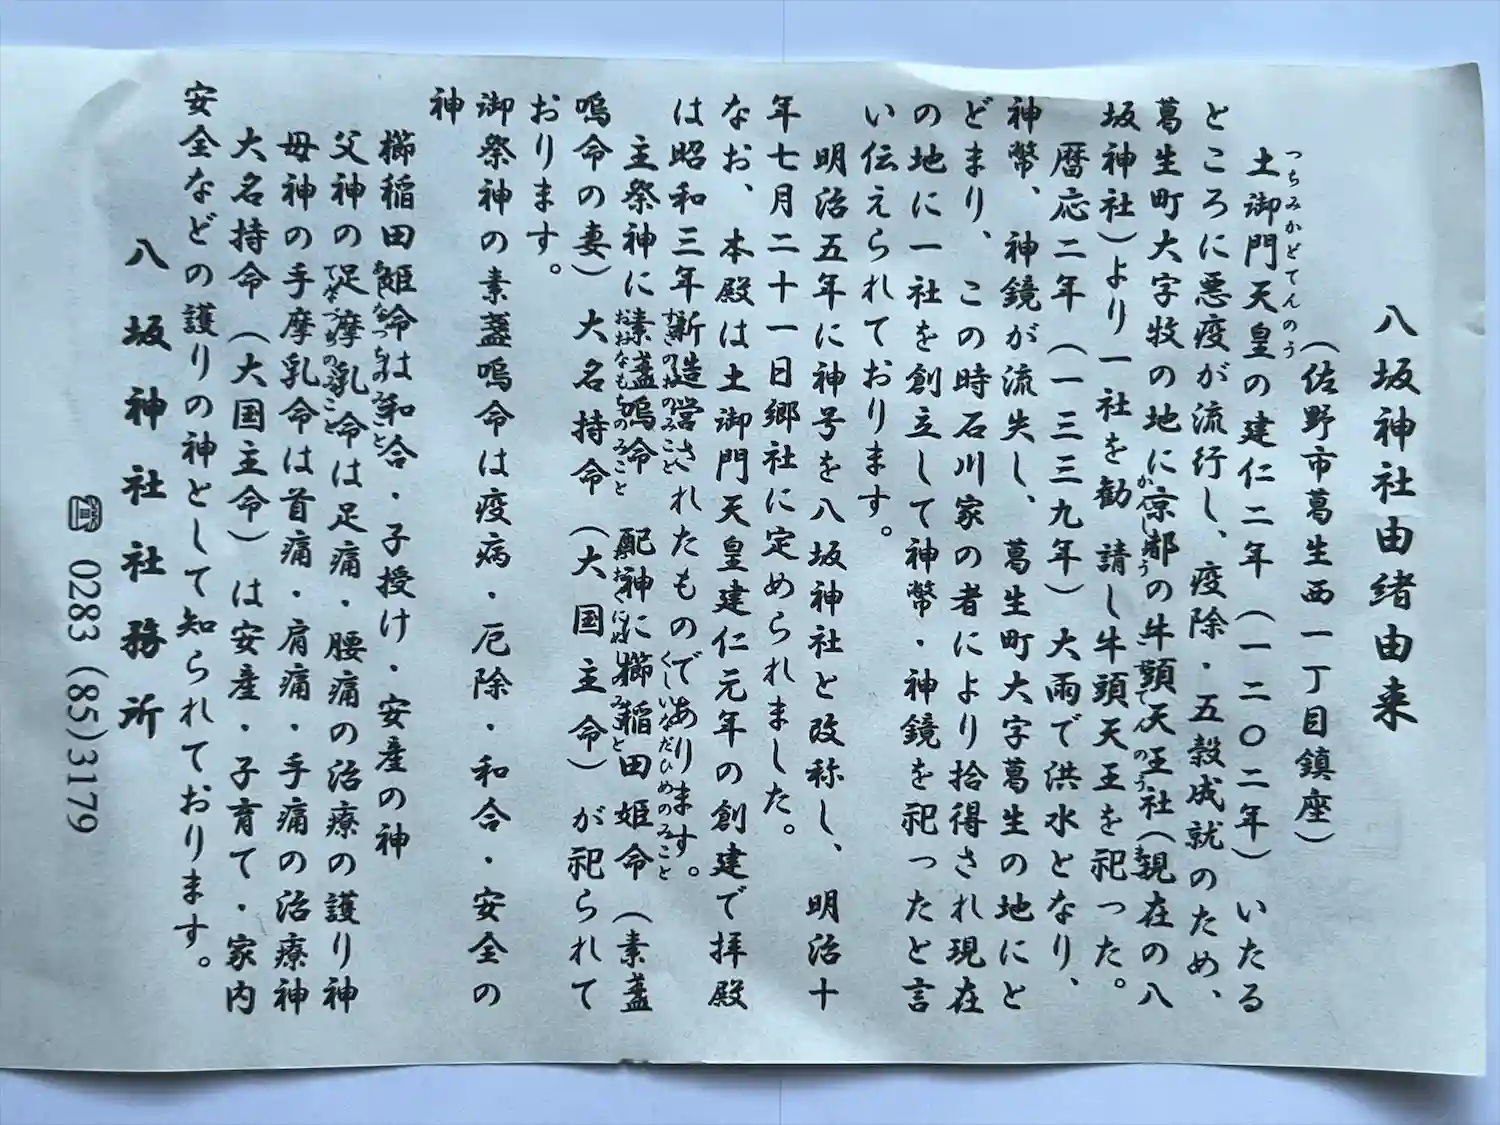 八坂神社由緒由来
(佐野市葛生西一丁目鎮座)
つちみかどてんのう
土御門天皇の建仁二年(一二〇二年)いたる
ところに悪疫が流行し、疫除・五穀成就のため、
葛生町大字牧の地に京都の牛頭天王社(現在の八
坂神社)より一社を勧請し牛頭天王を祀った。
暦応二年(一三三九年)大雨で洪水となり、
神幣、神鏡が流失し、葛生町大字葛生の地にと
どまり、この時石川家の者により拾得され現在
の地に一社を創立して神幣・神鏡を祀ったと言
い伝えられております。
明治五年に神号を八坂神社と改称し、明治十
年七月二十一日郷社に定められました。
なお、本殿は土御門天皇建仁元年の創建で拝殿
は昭和三年新造営されたものであります。
くしいなだひめのみこと
主祭神に素盞嗚命 配神に櫛稲田姫命(素盞
おおなもちのみこと
嗚命の妻)大名持命(大国主命)が祀られて
おります。
御祭神の素盞嗚命は疫病・厄除・和合・安全の
神
櫛稲田姫命は和合・子授け・安産の神
父神の足摩乳命は足痛・腰痛の治療の護り神
母神の手摩乳命は首痛・肩痛・手痛の治療神
大名持命(大国主命)は安産・子育て・家内
安全などの護りの神として知られております。
八坂神社社務所
☎ 0283(85)3179